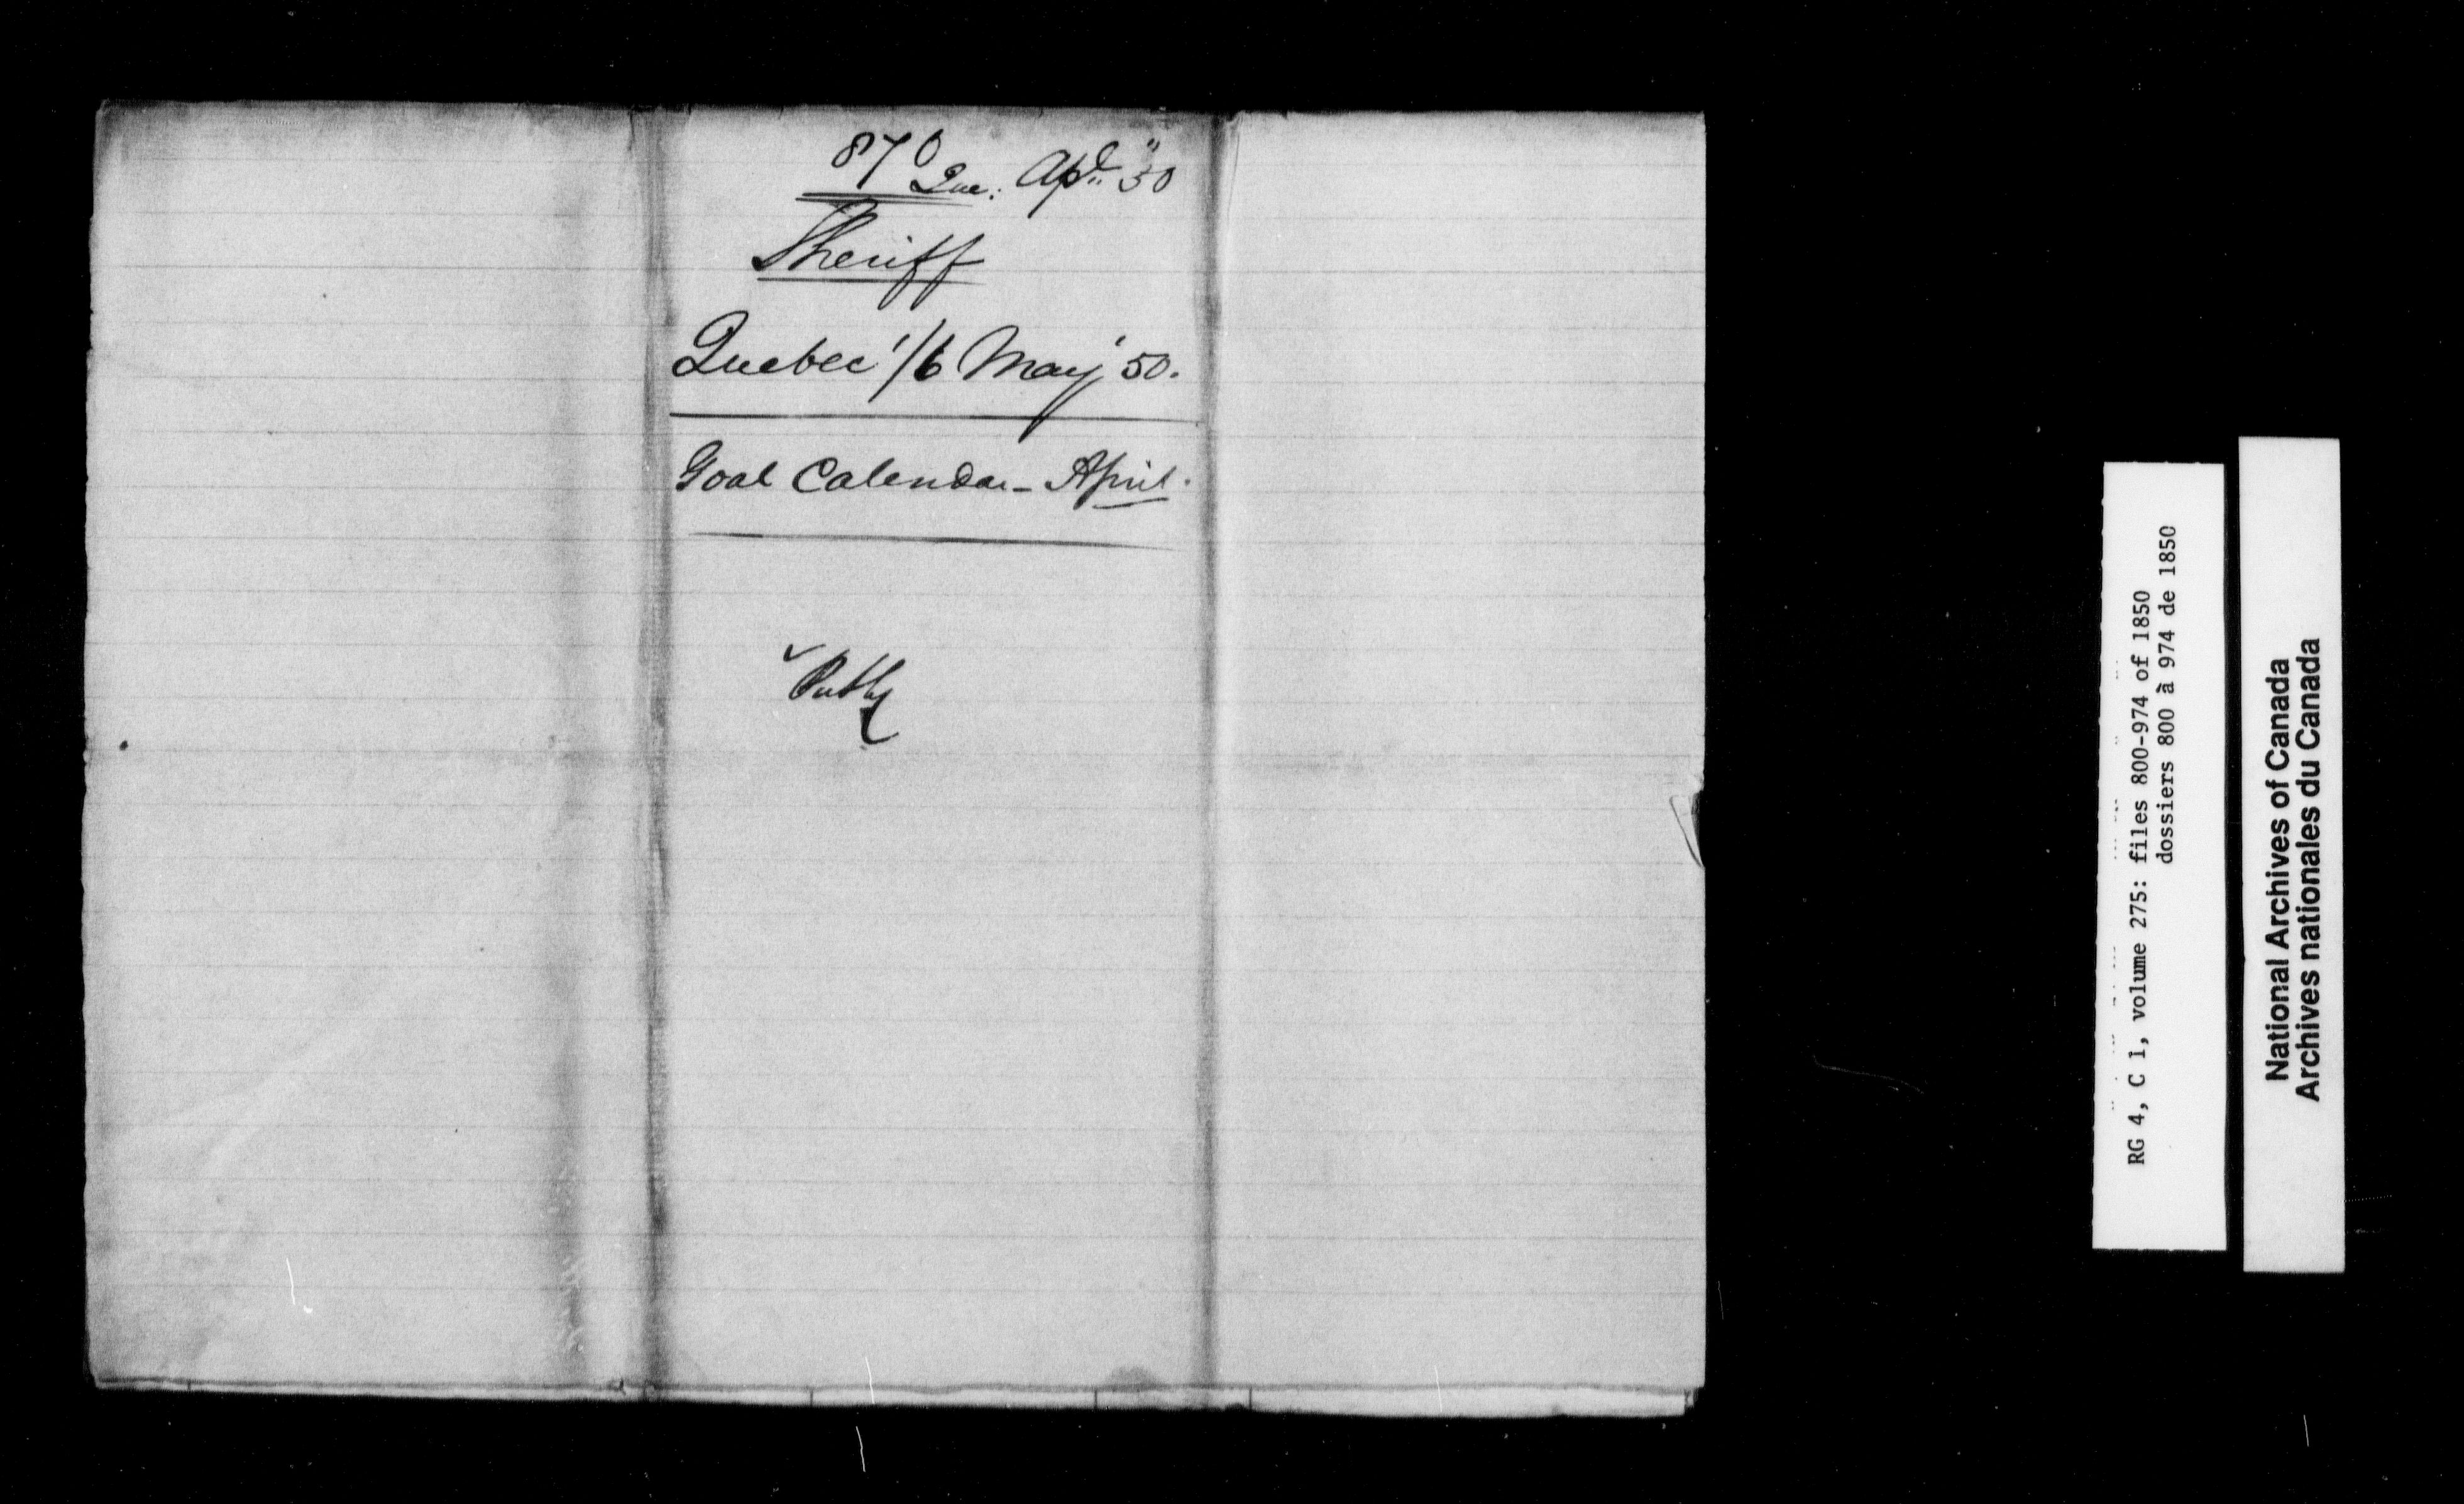 870 Que: Apl. "50
Sheriff
Quebec 1/6 May '50.
Goal Calendar - April.
RG 4, C 1, volume 275: files 800-974 of 1850
dossiers 800 à 974 de 1850
National Archives of Canada
Archives nationales du Canada